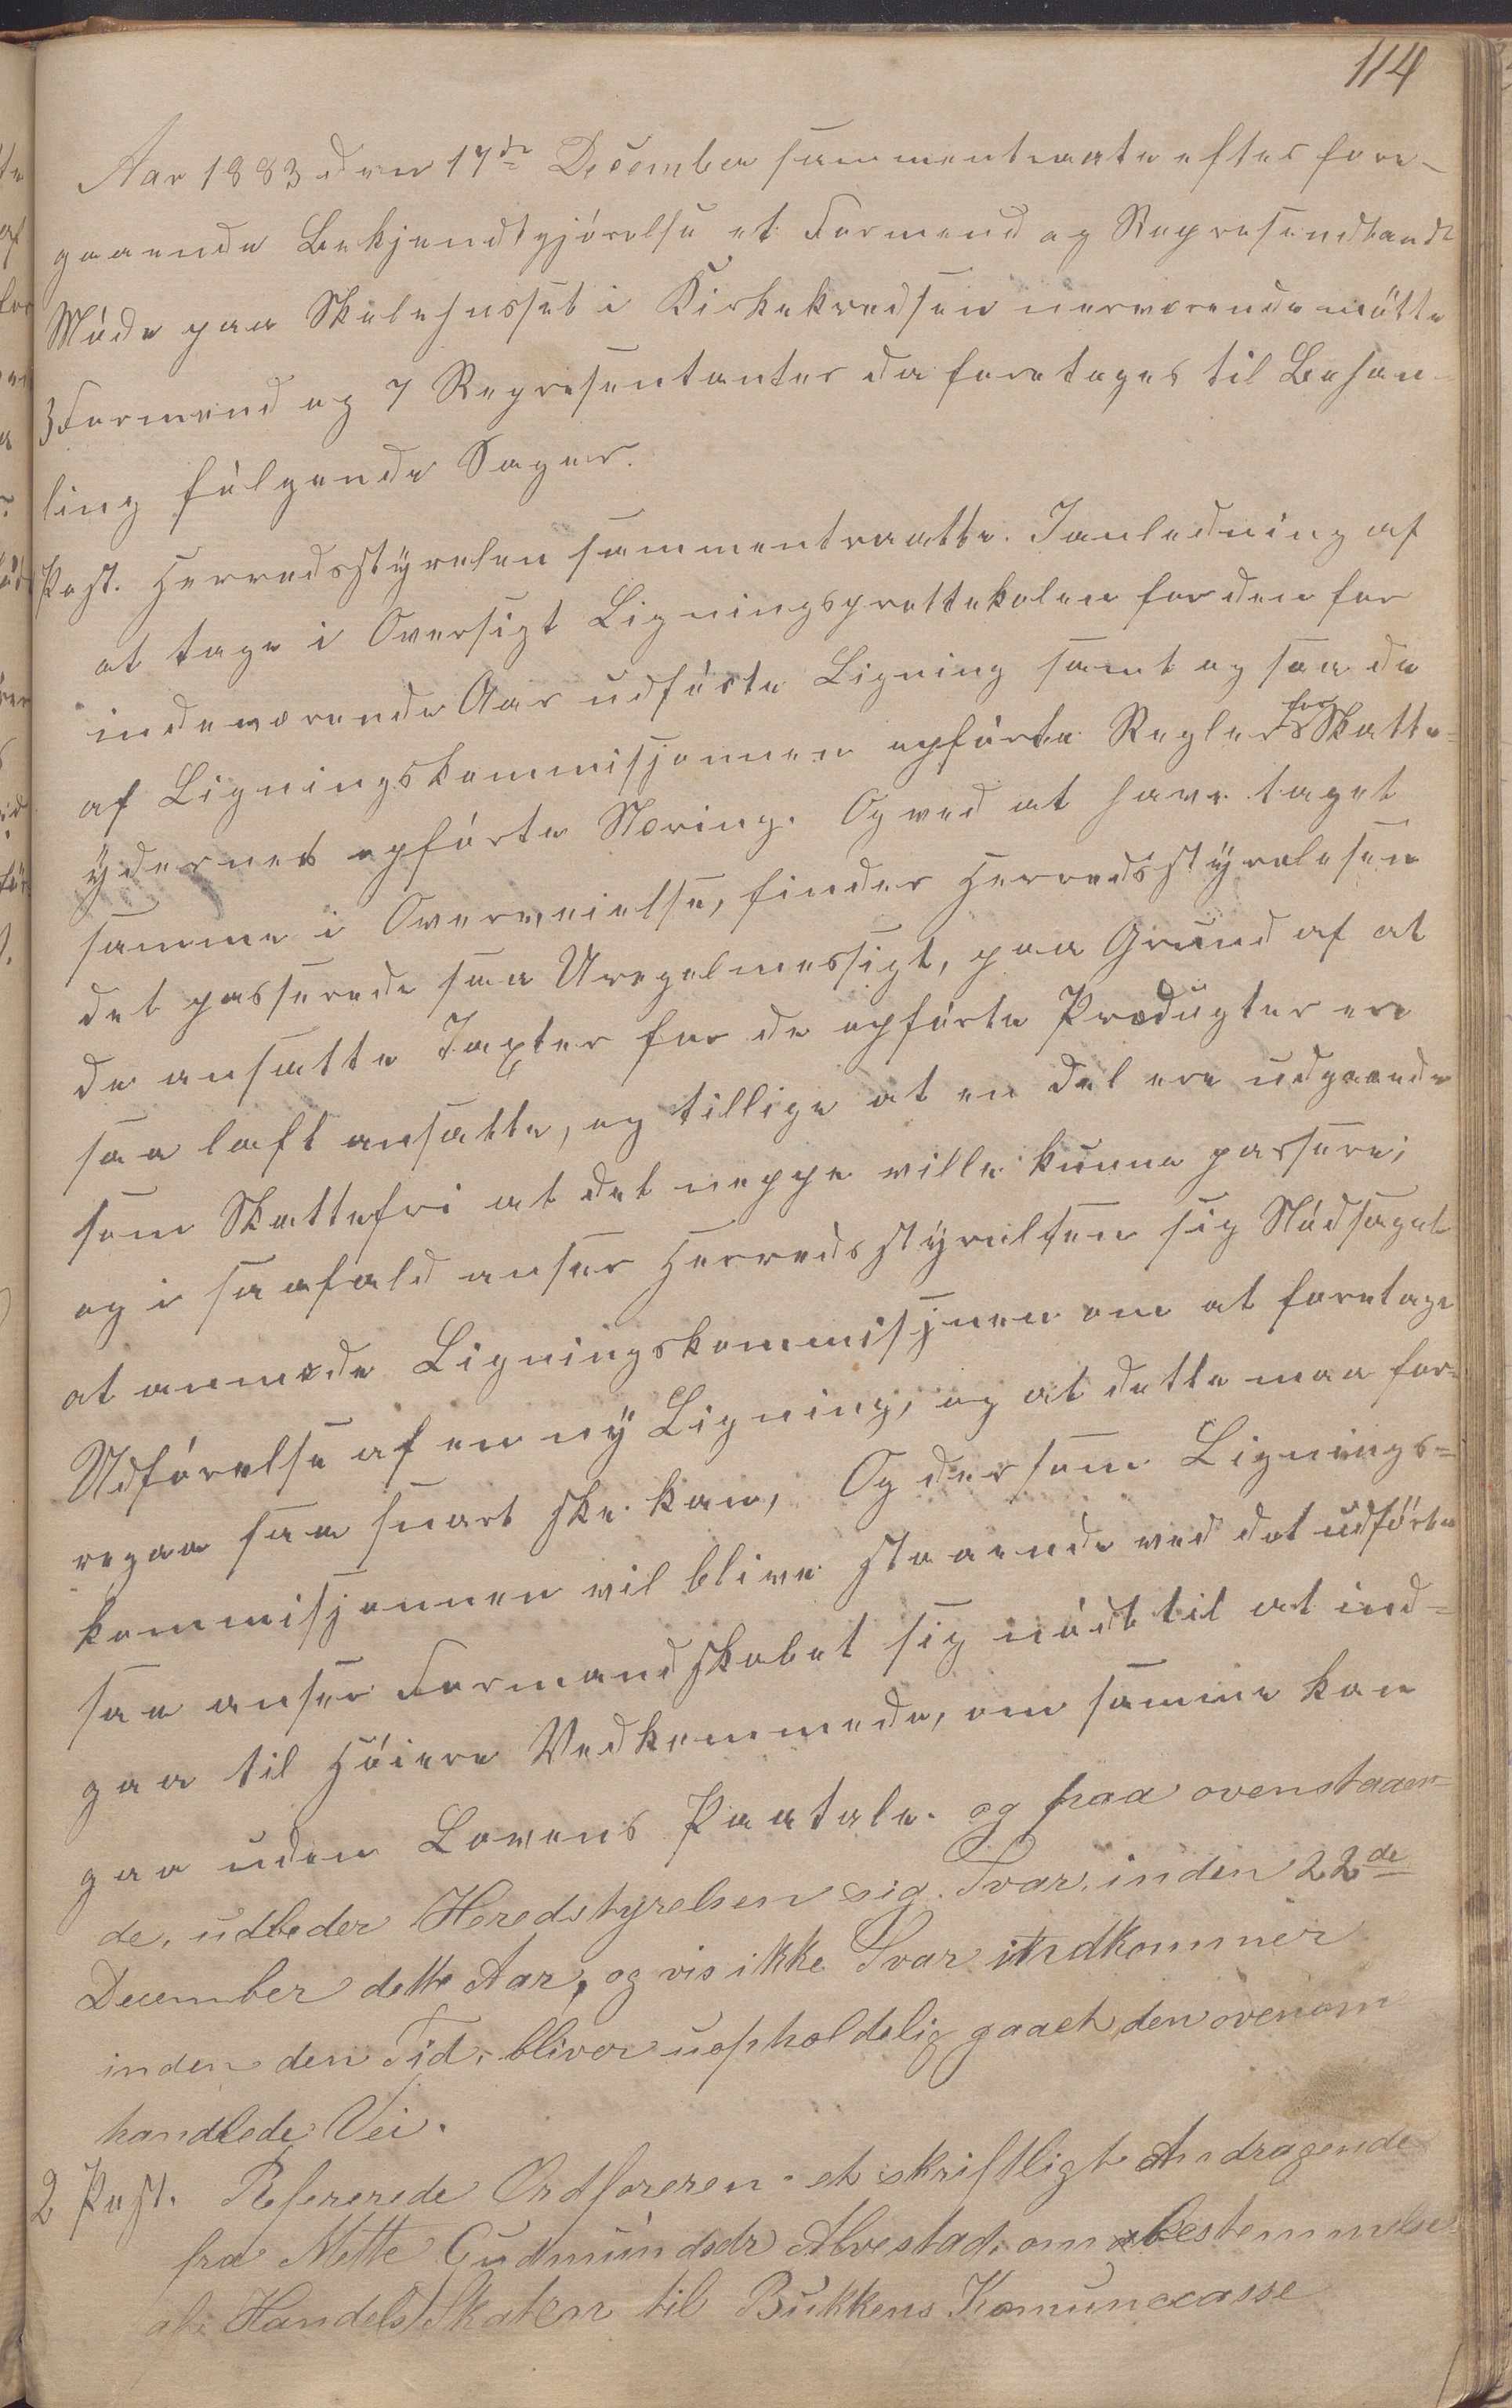 114
Aar 1883 den 17de December sammentraate efter fore-
gaaende Bekjendtgjórelse et Formend og Represendtandt
Móde paa Skolehusset i Kirkekredsen nerværende mötte
3 Formend og 7 Representanter da foretages til Behan-
ling fólgende Sager.
Post. Herredsstyrelen sammentraatte. Ianledning af
at tage i Oversigt Ligningsprottekolen for den for
indeværende Aar udfórte Ligning samt og saa de
af Ligningskommisjonnen opfórte Regler for Skatte-
ydernes opfórte Næring. Og ved at have taget
samme i Overveielse, finder Herredsstyrelesen
det passerede saa Uregelmessigt, paa Grund af at
de ansatte Taxter for de opfórte Produgter ere
saa laft ansatte, og tillige at en del ere udgaaende
som Skattefri at det neppe ville kunne passere;
og i saafald anser Herredsstyrelsen sig Nódsaget
at anmode Ligningskommisjnen om at foretage
Udfórelse af en ny Ligning, og at dette maa for-
regaa saa snart ske kan, Og dersom Lignings-
kommisjonnen vil blive staaende ved det udfórte
saa anser Formandskabet sig nódt til at ind-
gaa til Hóiere Vedkommede, om samme kan
gaa uden Lovens Paatale. og paa ovenstaaen-
de, udbeder Heredstyrelsen sig. Svar inden 22de
December dette Aar, og vis ikke Svar indkommer
inden den Tid, bliver uopholdelig gaaet den ovenom
handlede Vei.
2 Post. Refererede Ordforeren et skriftligt Andragende
fra Mette Gudmundsdr Alvestad, om bestemmelse
af Handels Skaten til Bukkens Komunecasse